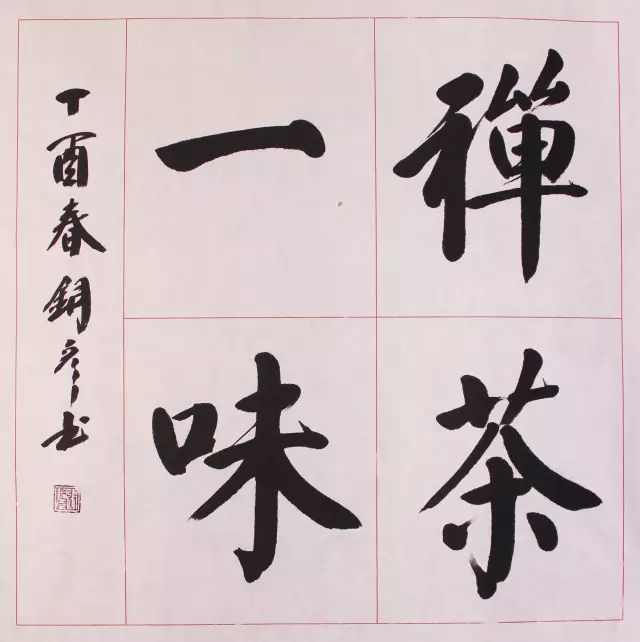 禪茶
一味
丁酉春銅彥书